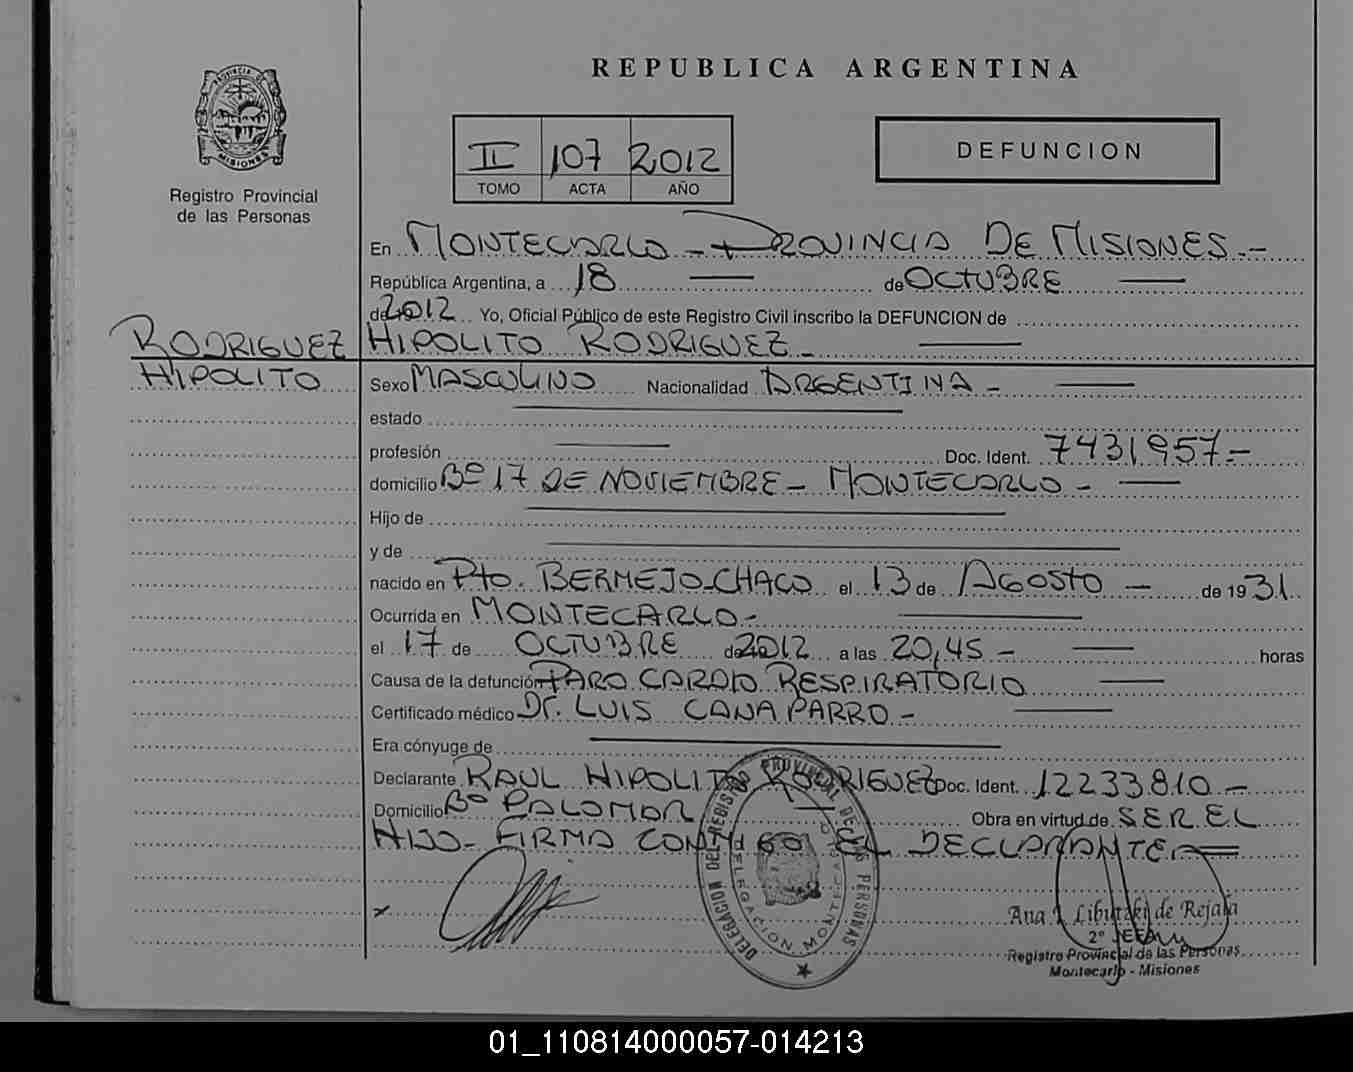 REPUBLICA ARGENTINA
PROVINCIA DE
MISIONES
Registro Provincial
de las Personas
II 107 2012
TOMO ACTA AÑO
DEFUNCION
En MONTECARLO - PROVINCIA DE MISIONES.-
República Argentina, a 18 de OCTUBRE
de 2012 Yo, Oficial Público de este Registro Civil inscribo la DEFUNCION de
RODRIGUEZ HIPOLITO RODRIGUEZ -
HIPOLITO Sexo MASCULINO Nacionalidad ARGENTINA -
estado
profesión Doc. Ident. 7431957.-
domicilio Bº 17 DE NOVIEMBRE - MONTECARLO -
Hijo de
y de
nacido en Pto. BERMEJO-CHACO el 13 de AGOSTO - de 1931
Ocurrida en MONTECARLO -
el 17 de OCTUBRE de 2012 a las 20,45 - horas
Causa de la defunción PARO CARDIO RESPIRATORIO
Certificado médico Dr. LUIS CANAPARRO -
Era cónyuge de
Declarante RAUL HIPOLITO RODRIGUEZ Doc. Ident. 12233.810 -
Domicilio Bº PALOMAR Obra en virtud de SER EL
HIJO - FIRMA CONMIGO EL DECLARANTE
DELEGACION DEL REGISTRO PROVINCIAL DE LAS PERSONAS
DELEGACION MONTECARLO
Ana I. Libutzki de Rejala
2º JEFA
Registro Provincial de las Personas
Montecarlo - Misiones
01_110814000057-014213